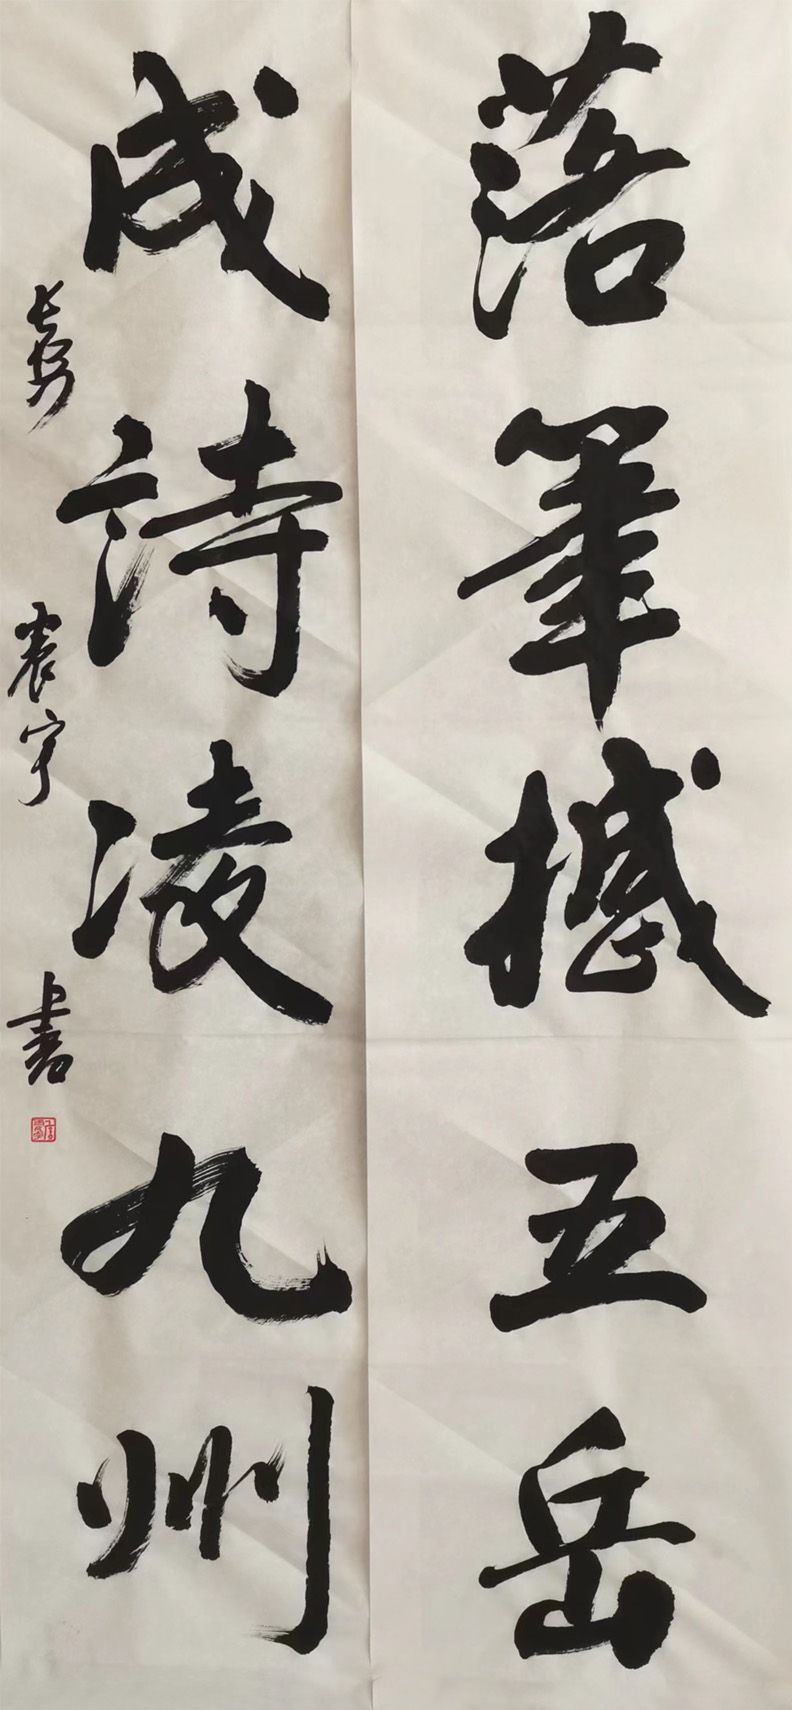 落筆撼五岳
成詩凌九州
震宇書